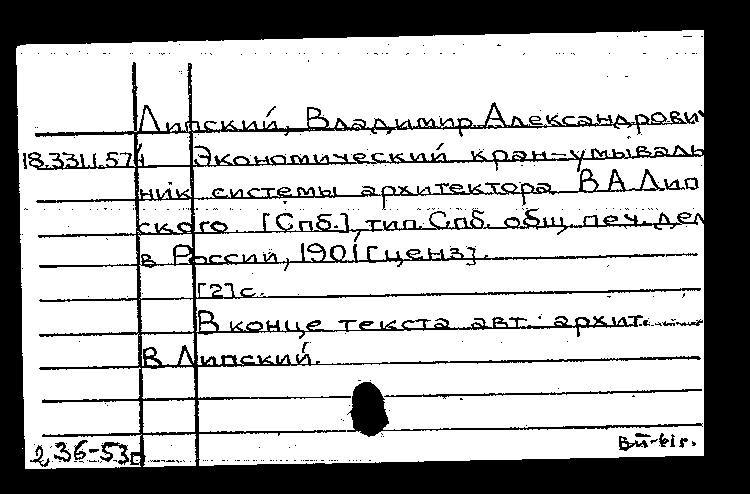 Липский, Владимир Александрович
18.331.1.574 Экономический кран-умываль
ник системы архитектора В А Лип
ского [Спб.], тип. Спб. общ. печ. дел
в России, 1901 [ценз].
[2] с.
В конце текста авт.: архит.
В Липский.
2,36-53